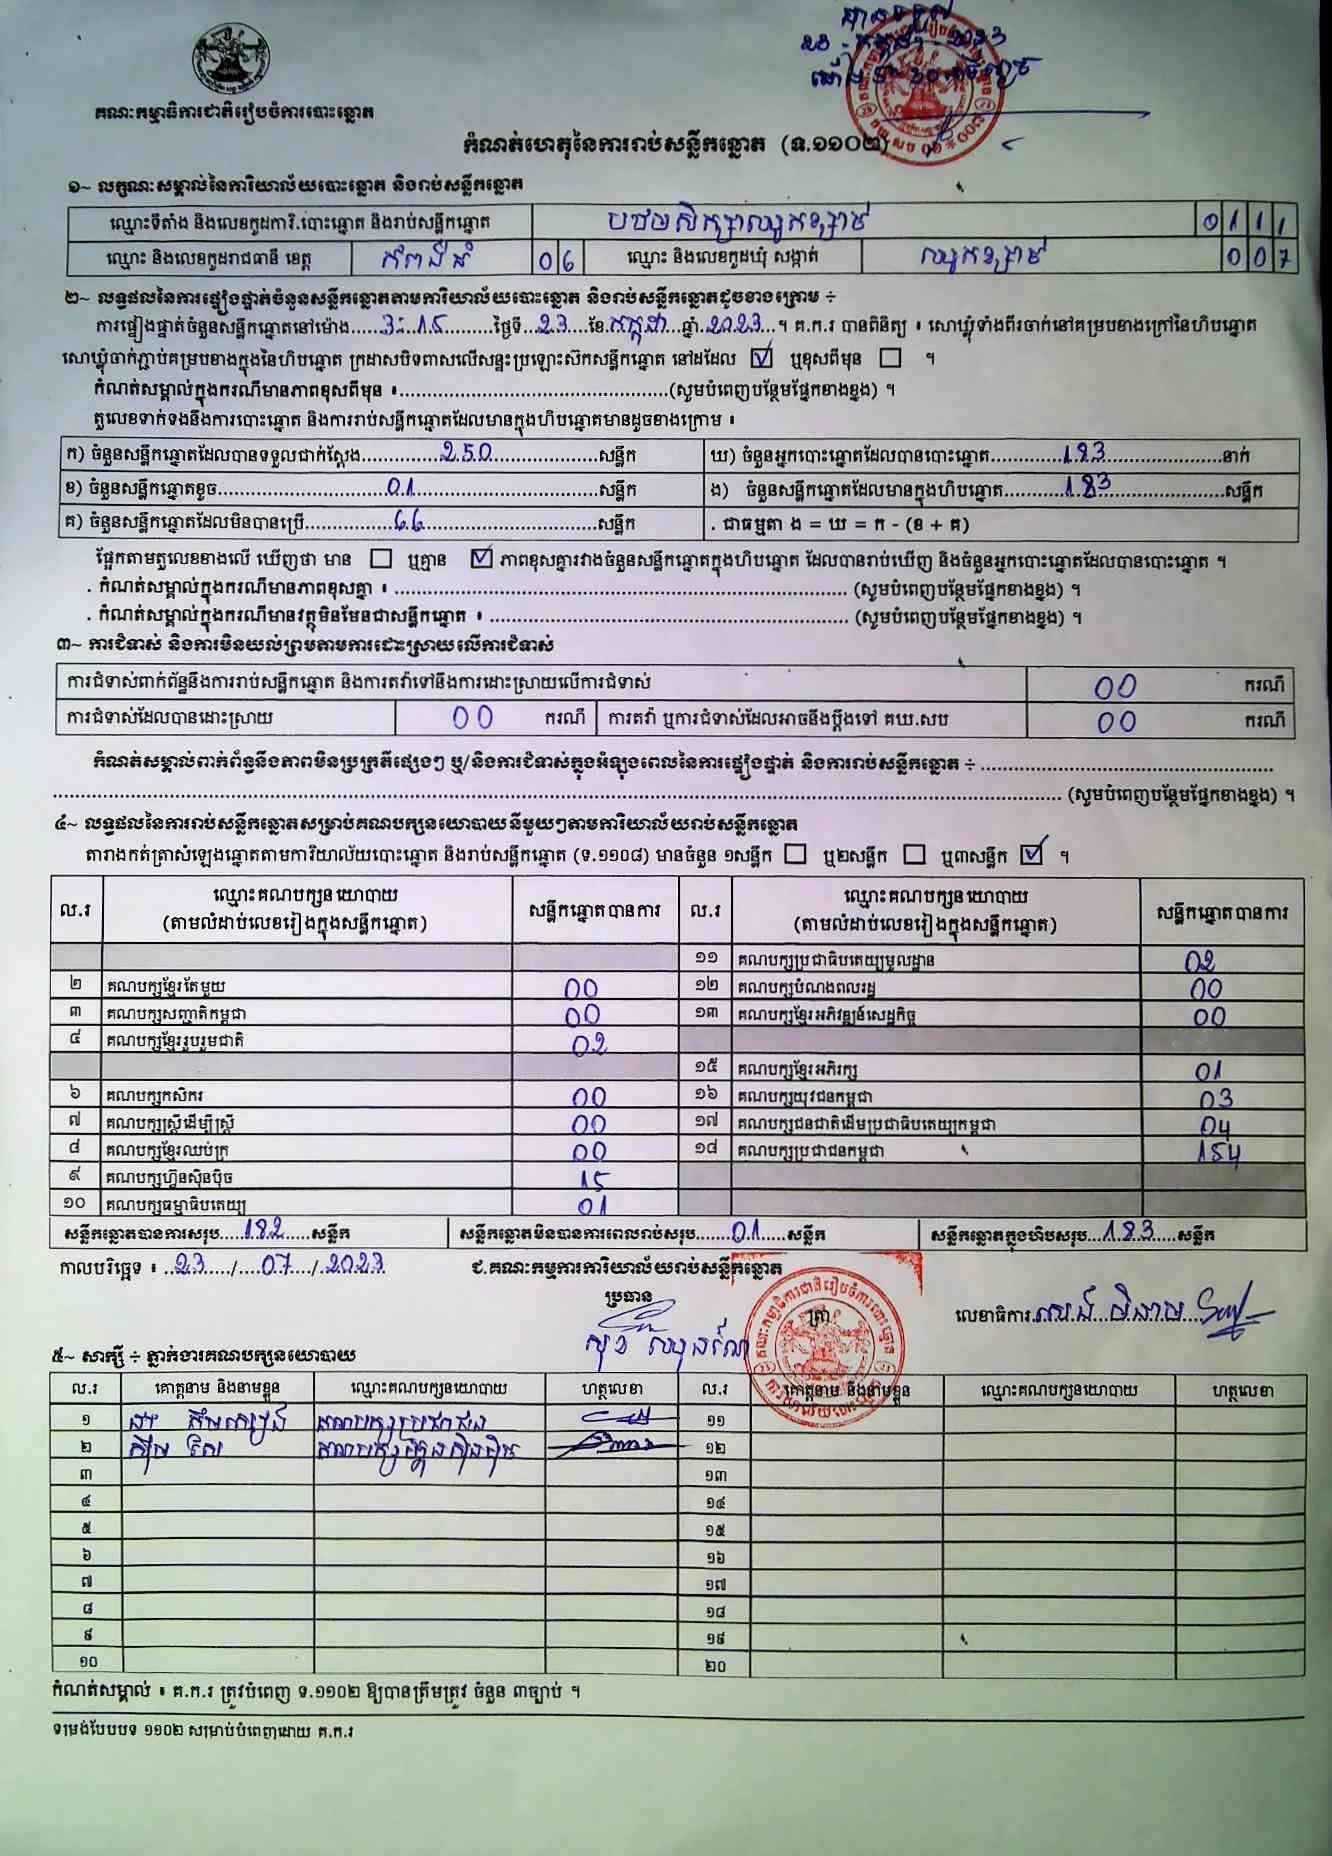 គណៈកម្មាធិការជាតិរៀបចំការបោះឆ្នោត
កំណត់ហេតុនៃការរាប់សន្លឹកឆ្នោត (ទ.១១០២)
១~ លក្ខណៈសម្គាល់នៃការិយាល័យបោះឆ្នោត និងរាប់សន្លឹកឆ្នោត
ឈ្មោះទីតាំង និងលេខកូដការិ.បោះឆ្នោត និងរាប់សន្លឹកឆ្នោត បឋមសិក្សាឈូកខ្សាច់ 0111
ឈ្មោះ និងលេខកូដរាជធានី ខេត្ត កំពង់ធំ 06 ឈ្មោះ និងលេខកូដឃុំ សង្កាត់ ឈូកខ្សាច់ 007
២~ លទ្ធផលនៃការផ្ទៀងផ្ទាត់ចំនួនសន្លឹកឆ្នោតតាមការិយាល័យបោះឆ្នោត និងរាប់សន្លឹកឆ្នោតដូចខាងក្រោម ÷
ការផ្ទៀងផ្ទាត់ចំនួនសន្លឹកឆ្នោតនៅម៉ោង 3:15 ថ្ងៃទី 23 ខែ កក្កដា ឆ្នាំ 2023 ។ គ.ក.រ បានពិនិត្យ ៖ សោឃ្លុំទាំងពីរចាក់នៅគម្របខាងក្រៅនៃហិបឆ្នោត
សោឃ្លុំចាក់ភ្ជាប់គម្របខាងក្នុងនៃហិបឆ្នោត ក្រដាសបិទពាសលើសន្ទះប្រឡោះស៊កសន្លឹកឆ្នោត នៅដដែល ☑ ឬខុសពីមុន ☐ ។
កំណត់សម្គាល់ក្នុងករណីមានភាពខុសពីមុន ៖ (សូមបំពេញបន្ថែមផ្នែកខាងខ្នង) ។
តួលេខទាក់ទងនឹងការបោះឆ្នោត និងការរាប់សន្លឹកឆ្នោតដែលមានក្នុងហិបឆ្នោតមានដូចខាងក្រោម ៖
ក) ចំនួនសន្លឹកឆ្នោតដែលបានទទួលជាក់ស្ដែង 250 សន្លឹក ឃ) ចំនួនអ្នកបោះឆ្នោតដែលបានបោះឆ្នោត 183 នាក់
ខ) ចំនួនសន្លឹកឆ្នោតខូច 01 សន្លឹក ង) ចំនួនសន្លឹកឆ្នោតដែលមានក្នុងហិបឆ្នោត 183 សន្លឹក
គ) ចំនួនសន្លឹកឆ្នោតដែលមិនបានប្រើ 66 សន្លឹក . ជាធម្មតា ង = ឃ = ក - (ខ + គ)
ផ្អែកតាមតួលេខខាងលើ ឃើញថា មាន ☐ ឬគ្មាន ☑ ភាពខុសគ្នារវាងចំនួនសន្លឹកឆ្នោតក្នុងហិបឆ្នោត ដែលបានរាប់ឃើញ និងចំនួនអ្នកបោះឆ្នោតដែលបានបោះឆ្នោត ។
. កំណត់សម្គាល់ក្នុងករណីមានភាពខុសគ្នា ៖ (សូមបំពេញបន្ថែមផ្នែកខាងខ្នង) ។
. កំណត់សម្គាល់ក្នុងករណីមានវត្ថុមិនមែនជាសន្លឹកឆ្នោត ៖ (សូមបំពេញបន្ថែមផ្នែកខាងខ្នង) ។
៣~ ការជំទាស់ និងការមិនយល់ព្រមតាមការដោះស្រាយលើការជំទាស់
ការជំទាស់ពាក់ព័ន្ធនឹងការរាប់សន្លឹកឆ្នោត និងការតវ៉ាទៅនឹងការដោះស្រាយលើការជំទាស់ 00 ករណី
ការជំទាស់ដែលបានដោះស្រាយ 00 ករណី ការតវ៉ា ឬការជំទាស់ដែលអាចនឹងប្ដឹងទៅ គឃ.សប 00 ករណី
កំណត់សម្គាល់ពាក់ព័ន្ធនឹងភាពមិនប្រក្រតីផ្សេងៗ ឬ/និងការជំទាស់ក្នុងអំឡុងពេលនៃការផ្ទៀងផ្ទាត់ និងការរាប់សន្លឹកឆ្នោត ÷
(សូមបំពេញបន្ថែមផ្នែកខាងខ្នង) ។
៤~ លទ្ធផលនៃការរាប់សន្លឹកឆ្នោតសម្រាប់គណបក្សនយោបាយនីមួយៗតាមការិយាល័យរាប់សន្លឹកឆ្នោត
តារាងកត់ត្រាសំឡេងឆ្នោតតាមការិយាល័យបោះឆ្នោត និងរាប់សន្លឹកឆ្នោត (ទ.១១០៨) មានចំនួន ១សន្លឹក ☐ ឬ២សន្លឹក ☐ ឬ៣សន្លឹក ☑ ។
ល.រ ឈ្មោះគណបក្សនយោបាយ (តាមលំដាប់លេខរៀងក្នុងសន្លឹកឆ្នោត) សន្លឹកឆ្នោតបានការ ល.រ ឈ្មោះគណបក្សនយោបាយ (តាមលំដាប់លេខរៀងក្នុងសន្លឹកឆ្នោត) សន្លឹកឆ្នោតបានការ
១១ គណបក្សប្រជាធិបតេយ្យមូលដ្ឋាន 02
២ គណបក្សខ្មែរតែមួយ 00 ១២ គណបក្សបំណងពលរដ្ឋ 00
៣ គណបក្សសញ្ជាតិកម្ពុជា 00 ១៣ គណបក្សខ្មែរអភិវឌ្ឍន៍សេដ្ឋកិច្ច 00
៤ គណបក្សខ្មែររួបរួមជាតិ 02
១៥ គណបក្សខ្មែរអភិរក្ស 01
៦ គណបក្សកសិករ 00 ១៦ គណបក្សយុវជនកម្ពុជា 03
៧ គណបក្សស្ត្រីដើម្បីស្ត្រី 00 ១៧ គណបក្សជនជាតិដើមប្រជាធិបតេយ្យកម្ពុជា 04
៨ គណបក្សខ្មែរឈប់ក្រ 00 ១៨ គណបក្សប្រជាជនកម្ពុជា 154
៩ គណបក្សហ៊្វុនស៊ិនប៉ិច 15
១០ គណបក្សធម្មាធិបតេយ្យ 01
សន្លឹកឆ្នោតបានការសរុប 182 សន្លឹក សន្លឹកឆ្នោតមិនបានការពេលរាប់សរុប 01 សន្លឹក សន្លឹកឆ្នោតក្នុងហិបសរុប 183 សន្លឹក
កាលបរិច្ឆេទ ៖ 23/07/2023 ជ.គណៈកម្មការការិយាល័យរាប់សន្លឹកឆ្នោត
ប្រធាន ត្រា លេខាធិការ
៥~ សាក្សី ÷ ភ្នាក់ងារគណបក្សនយោបាយ
ល.រ គោត្តនាម និងនាមខ្លួន ឈ្មោះគណបក្សនយោបាយ ហត្ថលេខា ល.រ គោត្តនាម និងនាមខ្លួន ឈ្មោះគណបក្សនយោបាយ ហត្ថលេខា
១ គណបក្សប្រជាជន ១១
២ គណបក្សហ៊្វុនស៊ិនប៉ិច ១២
៣ ១៣
៤ ១៤
៥ ១៥
៦ ១៦
៧ ១៧
៨ ១៨
៩ ១៩
១០ ២០
កំណត់សម្គាល់ ៖ គ.ក.រ ត្រូវបំពេញ ទ.១១០២ ឱ្យបានត្រឹមត្រូវ ចំនួន ៣ច្បាប់ ។
ទម្រង់បែបបទ ១១០២ សម្រាប់បំពេញដោយ គ.ក.រ